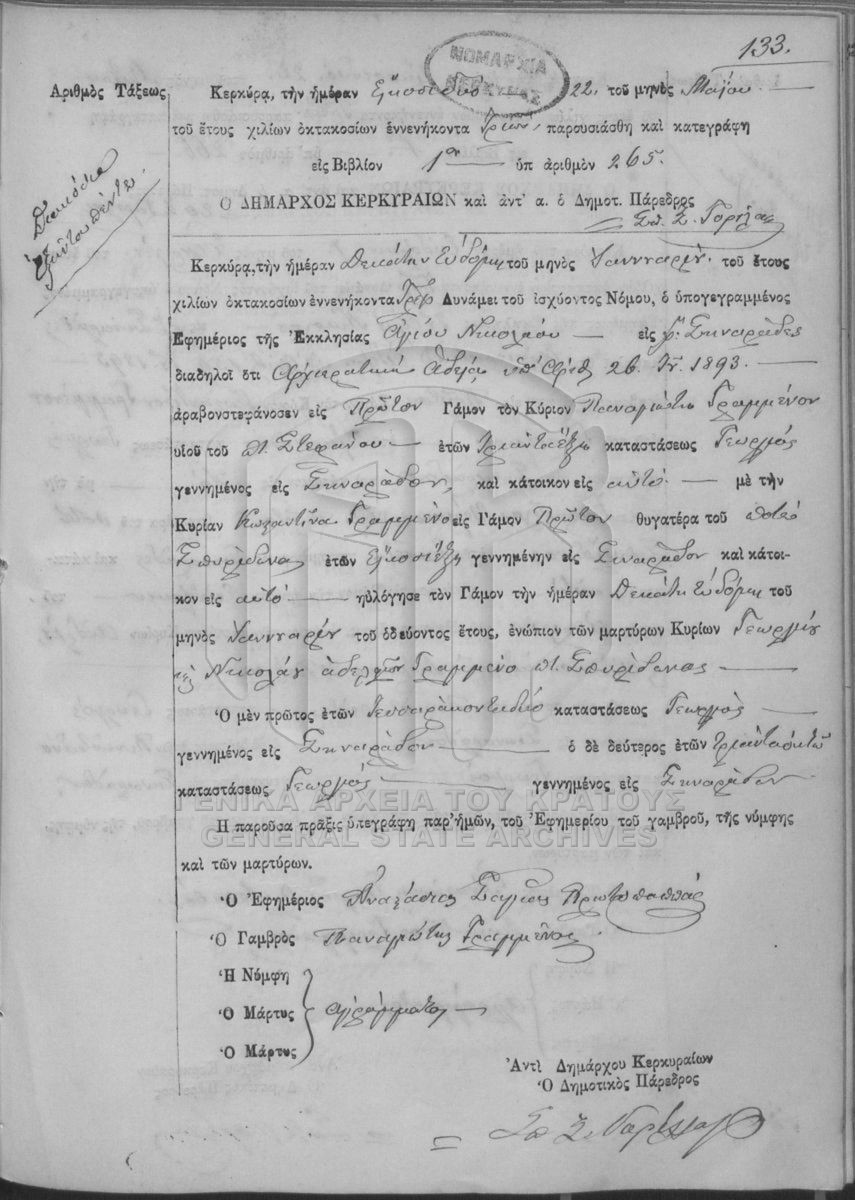 133.
ΝΟΜΑΡΧΙΑ
ΚΕΡΚΥΡΑΣ
Αριθμὸς Τάξεως
Διακόσια
ἑξῆντα πέντε.
Κερκύρᾳ, τὴν ἡμέραν Εἴκοσι δύο 22. τοῦ μηνὸς Μαΐου
τοῦ ἔτους χιλίων ὀκτακοσίων ἐννενήκοντα τριῶν, παρουσιάσθη καὶ κατεγράφη
εἰς Βιβλίον 1ον ὑπ ἀριθμὸν 265.
Ο ΔΗΜΑΡΧΟΣ ΚΕΡΚΥΡΑΙΩΝ καὶ ἀντ' α. ὁ Δημοτ. Πάρεδρος
Σπ. Σ.
Κερκύρᾳ, τὴν ἡμέραν Δεκάτην ἑβδόμην τοῦ μηνὸς Ἰαννουαρίου τοῦ ἔτους
χιλίων ὀκτακοσίων ἐννενήκοντα τρία Δυνάμει τοῦ ἰσχύοντος Νόμου, ὁ ὑπογεγραμμένος
Ἐφημέριος τῆς Ἐκκλησίας Ἁγίου Νικολάου εἰς χ. Σιναράδες
διαδηλοῖ ὅτι Ἀρχιερατικῇ ἀδείᾳ ὑπ' ἀριθ 26. Ἰν. 1893.
ἀραβονστεφάνοσεν εἰς Πρῶτον Γάμον τὸν Κύριον Παναγιώτη Γραμμένον
υἱοῦ τοῦ π. Στεφάνου ἐτῶν τριάντα ἕξη καταστάσεως Γεωργὸς
γεννημένος εἰς Σιναράδον, καὶ κάτοικον εἰς αὐτὸ μὲ τὴν
Κυρίαν Κωσταντίνα Γραμμένο εἰς Γάμον Πρῶτον θυγατέρα τοῦ ποτὲ
Σπυρίδωνα ἐτῶν Εἴκοσι ἕξη γεννημένην εἰς Σιναράδον καὶ κάτοι-
κον εἰς αὐτὸ ηὐλόγησε τὸν Γάμον τὴν ἡμέραν Δεκάτη ἑβδόμη τοῦ
μηνὸς Ἰαννουαρίου τοῦ ὁδεύοντος ἔτους, ἐνώπιον τῶν μαρτύρων Κυρίων Γεωργίου
κ Νικολάου ἀδελφῶν Γραμμένο π. Σπυρίδωνας
Ὁ μὲν πρῶτος ἐτῶν Τεσσαράκοντα δύο καταστάσεως Γεωργὸς
γεννημένος εἰς Σιναράδον ὁ δὲ δεύτερος ἐτῶν τριάντα ὀκτὼ
καταστάσεως Γεωργὸς γεννημένος εἰς Σιναράδον
ΓΕΝΙΚΑ ΑΡΧΕΙΑ ΤΟΥ ΚΡΑΤΟΥΣ
GENERAL STATE ARCHIVES
Ἡ παροῦσα πρᾶξις ὑπεγράφη παρ' ἡμῶν, τοῦ Ἐφημερίου τοῦ γαμβροῦ, τῆς νύμφης
καὶ τῶν μαρτύρων.
Ὁ Ἐφημέριος Ἀναστάσιος Πρωτοπαππᾶς
Ὁ Γαμβρὸς Παναγιώτης Γραμμένος
Ἡ Νύμφη
Ὁ Μάρτυς ἀγράμματοι
Ὁ Μάρτυς
Ἀντὶ Δημάρχου Κερκυραίων
Ὁ Δημοτικὸς Πάρεδρος
Σπ Σ.